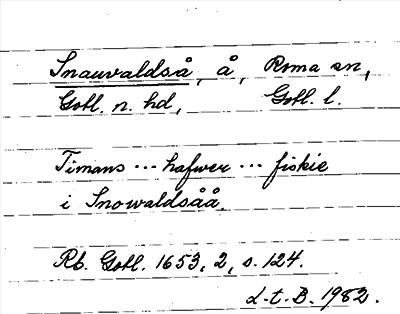 Snauvaldså, å, Roma sn,
Gotl. n. hd, Gotl. l.
Timans ... hafwer ... fiskie
i Snowaldsåå.
Rb. Gotl. 1653, 2, s. 124.
L.t.B. 1982.